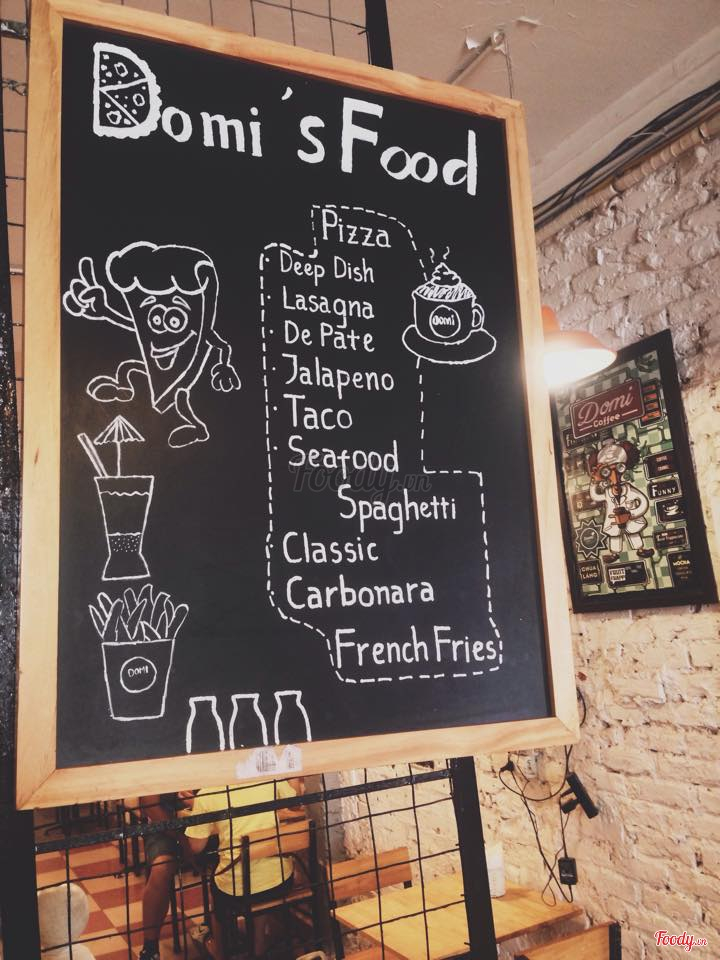 Domi's Food
Pizza
Deep Dish
Lasagna
De Pate
Jalapeno
Taco
Seafood
Spaghetti
Classic
Carbonara
French Fries
Domi
DOMI
Domi
Coffee
FUNNY
CHUA
LANG
MOCHA
Foody.vn
Foody.vn